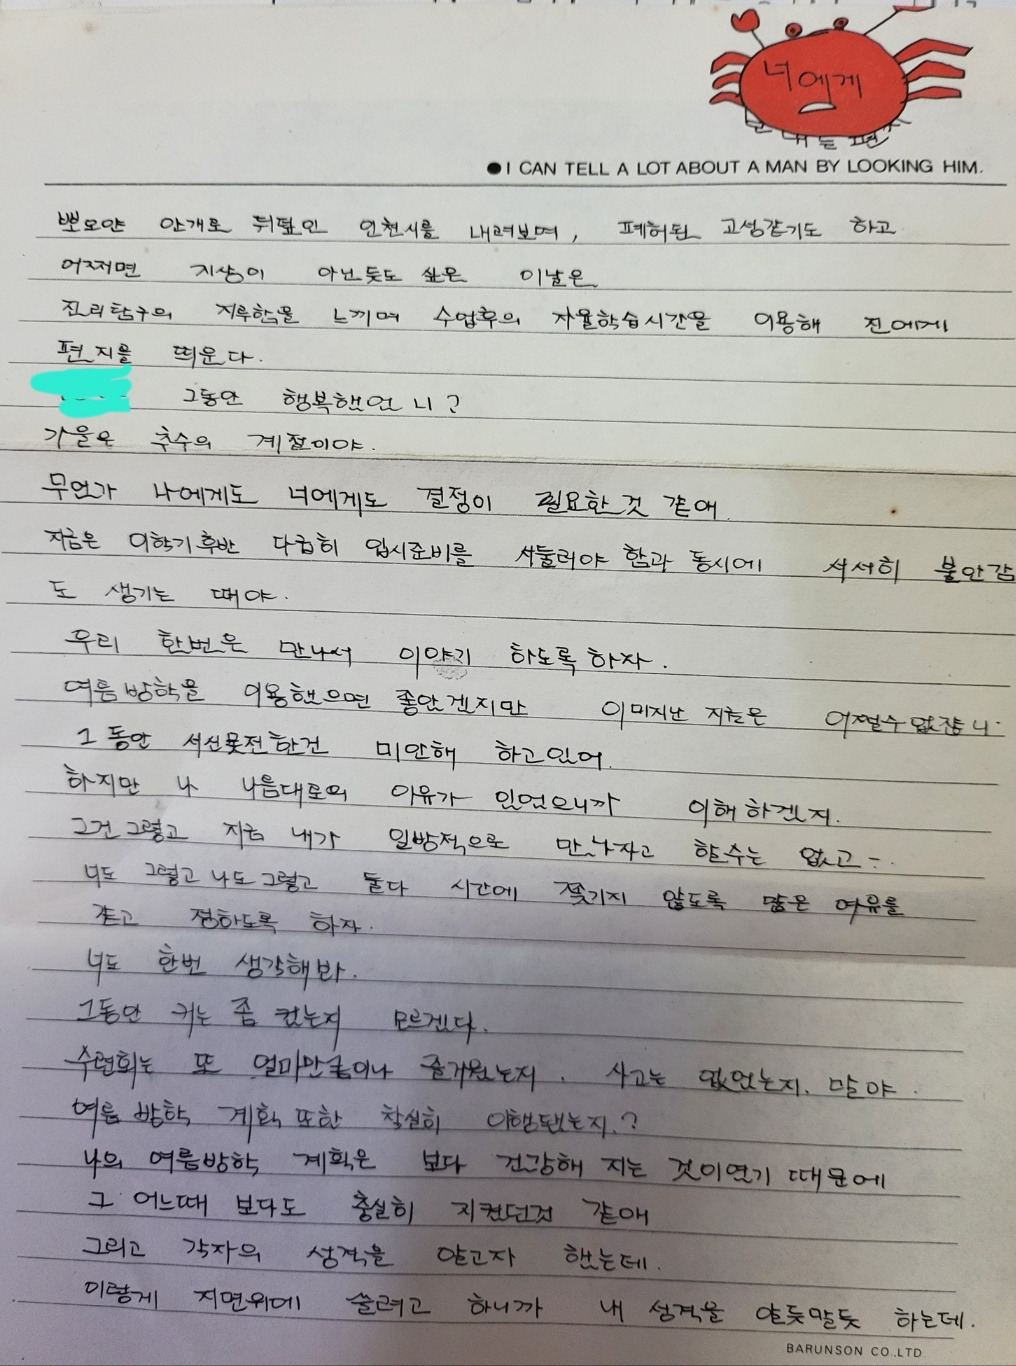 너에게
보내는 편지
●I CAN TELL A LOT ABOUT A MAN BY LOOKING HIM.
뽀오얀 안개로 뒤덮인 인천시를 내려보며, 폐허된 고성같기도 하고
어쩌면 지상이 아닌듯도 싶은 이날은
진리탐구의 지루함을 느끼며 수업후의 자율학습시간을 이용해 진에게
편지를 띄운다.
그동안 행복했었니?
가을은 추수의 계절이야.
무언가 나에게도 너에게도 결정이 필요한것 같애.
지금은 이학기후반 다급히 입시준비를 서둘러야 함과 동시에 서서히 불안감
도 생기는 때야.
우리 한번은 만나서 이야기 하도록하자.
여름방학을 이용했으면 좋았겠지만 이미지난 지금은 어쩔수없잖니.
그동안 서신못전한건 미안해 하고있어.
하지만 나 나름대로의 이유가 있었으니까 이해하겠지.
그건그렇고 지금 내가 일방적으로 만나자고 할수는 없고-.
너도 그렇고 나도그렇고 둘다 시간에 쫓기지 않도록 많은 여유를
갖고 정하도록 하자.
너도 한번 생각해봐.
그동안 키는 좀 컸는지 모르겠다.
수련회는 또 얼마만큼이나 즐거웠는지. 사고는 없었는지. 말야.
여름 방학 계획또한 착실히 이행됐는지.?
나의 여름방학 계획은 보다 건강해 지는 것이였기 때문에
그 어느때 보다도 충실히 지켰던것 같애
그리고 각자의 성격을 알고자 했는데.
이렇게 지면위에 쓸려고 하니까 내 성격을 알듯말듯 하는데.
BARUNSON CO.,LTD